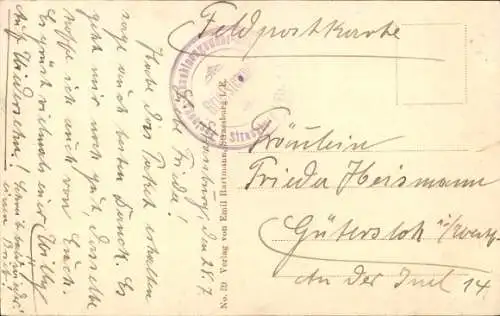 Feldpostkarte
Straßburg, den 28. 7.
Liebe Frieda!
Habe das Paket erhalten
sage auch besten Dank. Es
geht mir noch gut, dasselbe
hoffe ich auch von Euch.
Es grüßt vielmals euer Willy
Auf Wiedersehn!
einen Brief!
No. 39 Verlag von Emil Hartmann, Strassburg i. E.
Fräulein
Frieda Heismann
Gütersloh i/Westf.
An der Insel 14.